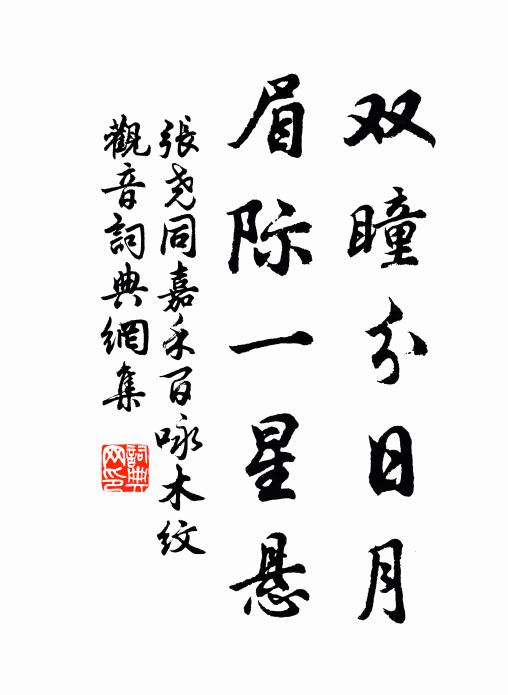 双瞳分日月
眉际一星悬
張尧同嘉禾百咏木紋
觀音詞典網集
詞典网印